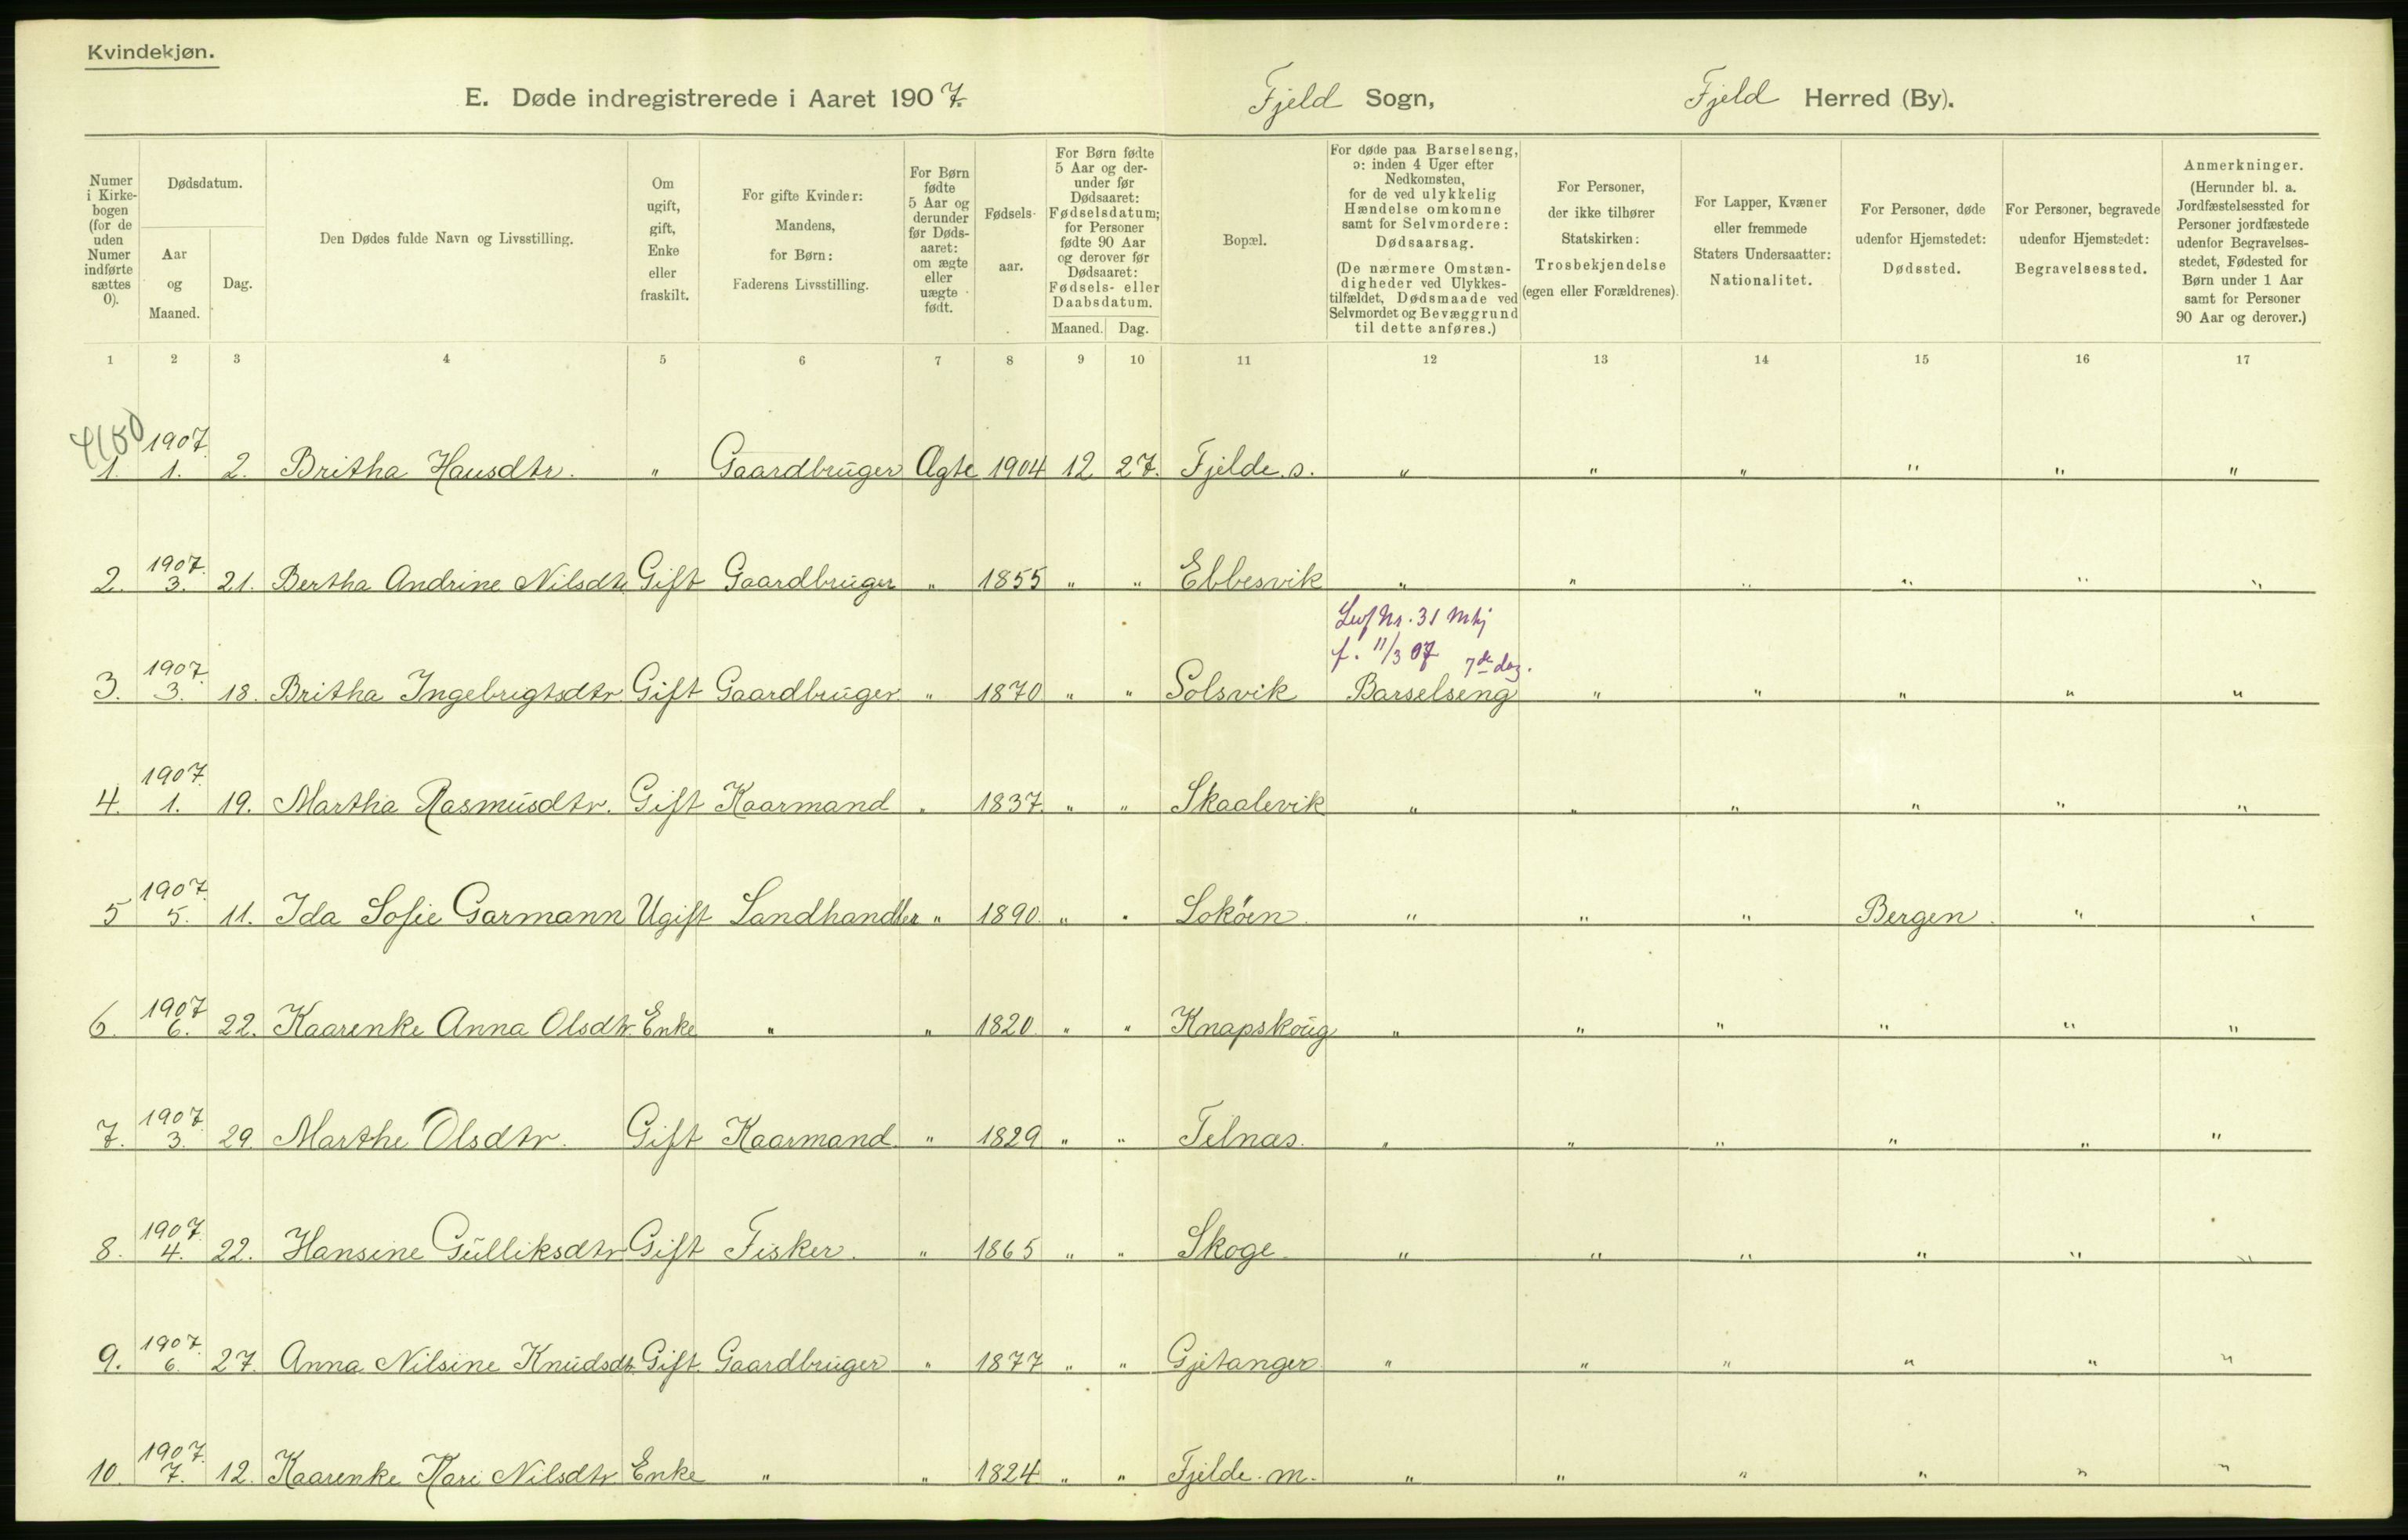 Kvindekjøn.
E. Døde indregistrerede i Aaret 1907. Fjeld Sogn, Fjeld Herred (By).
Numer i Kirke-bogen (for de uden Numer indførte sættes 0).
Dødsdatum.
Aar og Maaned.
Dag.
Den Dødes fulde Navn og Livsstilling.
Om ugift, gift, Enke eller fraskilt.
For gifte Kvinder: Mandens, for Børn: Faderens Livsstilling.
For Børn fødte 5 Aar og derunder før Døds-aaret: om ægte eller uægte født.
Fødsels-aar.
For Børn fødte 5 Aar og der-under før Dødsaaret: Fødselsdatum; for Personer fødte 90 Aar og derover før Dødsaaret: Fødsels- eller Daabsdatum.
Maaned. Dag.
Bopæl.
For døde paa Barselseng, ɔ: inden 4 Uger efter Nedkomsten, for de ved ulykkelig Hændelse omkomne samt for Selvmordere: Dødsaarsag.
(De nærmere Omstæn-digheder ved Ulykkes-tilfældet, Dødsmaade ved Selvmordet og Bevæggrund til dette anføres.)
For Personer, der ikke tilhører Statskirken: Trosbekjendelse (egen eller Forældrenes).
For Lapper, Kvæner eller fremmede Staters Undersaatter: Nationalitet.
For Personer, døde udenfor Hjemstedet: Dødssted.
For Personer, begravede udenfor Hjemstedet: Begravelsessted.
Anmerkninger. (Herunder bl. a. Jordfæstelsessted for Personer jordfæstede udenfor Begravelses-stedet, Fødested for Børn under 1 Aar samt for Personer 90 Aar og derover.)
1 2 3 4 5 6 7 8 9 10 11 12 13 14 15 16 17
1907.
1. 1. 2. Britha Hansdtr. " Gaardbruger Ægte 1904 12 27. Fjelde. s. " " " " " "
1907.
2. 3. 21. Bertha Andrine Nilsdtr Gift Gaardbruger " 1855 " " Ebbesvik " " " " " "
Nr. 31 Mkj
f. 11/3 07 7de dag.
1907.
3. 3. 18. Britha Ingebrigtsdtr Gift Gaardbruger. " 1870 " " Solsvik Barselseng " " " " "
1907.
4. 1. 19. Martha Rasmusdtr. Gift Kaarmand " 1837. " " Skaalevik " " " " " "
1907.
5 5. 11. Ida Sofie Garmann Ugift Landhandler " 1890. " " Lokøen. " " " Bergen. " "
1907
6. 6. 22. Kaarenke Anna Olsdtr. Enke " " 1820. " " Knapskoug " " " " " "
1907.
7. 3. 29. Marthe Olsdtr. Gift Kaarmand. " 1829 " " Telnæs. " " " " " "
1907.
8. 4. 22. Hansine Gulliksdtr Gift Fisker. " 1865 " " Skoge " " " " " "
1907.
9. 6. 27. Anna Nilsine Knudsdtr. Gift. Gaardbruger " 1877 " " Gjetanger " " " " " "
1907.
10. 7. 12. Kaarenke Kari Nilsdtr Enke " " 1824 " " Fjelde. m. " " " " " "